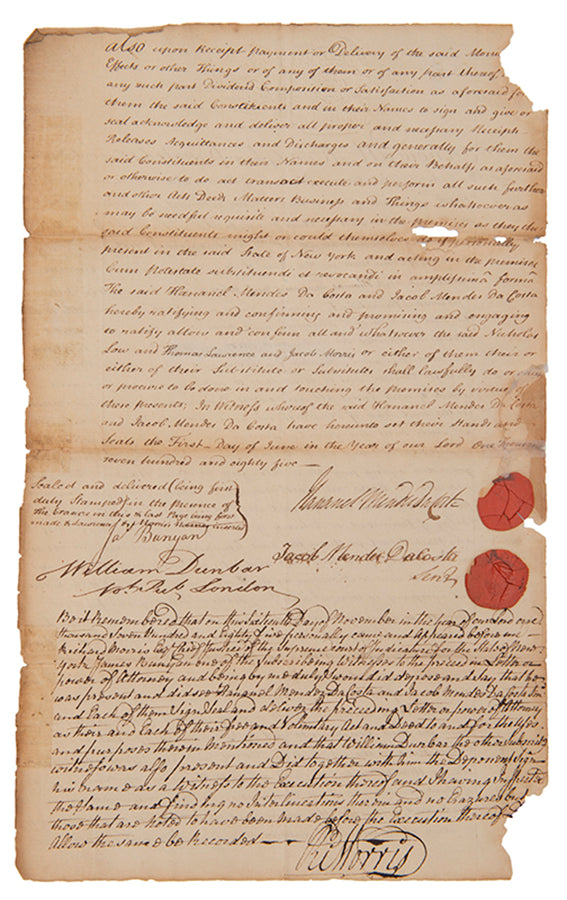 also upon Receipt Payment or Delivery of the said Mon
Effects or other Things or of any of them or of any part thereof
any such part Dividend Composition or Satisfaction as aforesaid for
them the said Constituents and in their Names to sign and give or
seal acknowledge and deliver all proper and necessary Receipts
Releases Acquittances and Discharges and generally for them the
said Constituents in their Names and on their Behalfs as aforesaid
or otherwise to do act transact execute and perform all such further
and other Acts Deeds Matters Business and Things whatsoever as
may be needful requisite and necessary in the premises as they the
said Constituents might or could themselves do if personally
present in the said State of New York and acting in the premises
Cum Potestate substituendi et revocandi in amplissimâ formâ
The said Hananel Mendes Da Costa and Jacob Mendes Da Costa
hereby ratifying and confirming and promising and engaging
to ratify allow and confirm all and whatsoever the said Nicholas
Low and Thomas Lawrence and Jacob Morris or either of them their or
either of their Substitute or Substitutes shall lawfully do or
or procure to be done in and touching the premises by virtue of
these presents; In Witness whereof the said Hananel Mendes Da Costa
and Jacob Mendes Da Costa have hereunto set their Hands and
Seals the First Day of June in the Year of our Lord One thousand
seven hundred and eighty five —
Sealed and delivered (being first
duly Stamped) in the presence of
the erazures in this & last Page being first
made &
Hananel Mendes Da Costa
Ja Bunyan
Jacob Mendes DaCosta
William Dunbar
Not Pub London
Be it Remembered that on this Sixteenth Day of November in the year of our Lord one
Thousand Seven Hundred and Eighty five personally came and appeared before me
Richard Morris Esq Chief Justice of the Supreme Court of Judicature for the State of New
York James Bunyan one of the Subscribing Witnesses to the preceding Letter or
power of Attorney and being by me duly Sworn did depose and say that he
was present and did see Hananel Mendes Da Costa and Jacob Mendes Da Costa
and Each of them Sign Seal and deliver the preceding Letter or power of Attorney
as their and Each of their free and Voluntary Act and Deed to and for the Uses
and purposes therein Mentioned and that William Dunbar the other Subscribing
witness was also present and Did together with him the Deponent Sign
his name as a Witness to the Execution thereof and I having Inspected
the Same and finding no Interlineations therein and no Erazures but
those that are Noted to have been made before the Execution thereof
Allow the same to be Recorded —
Ri Morris